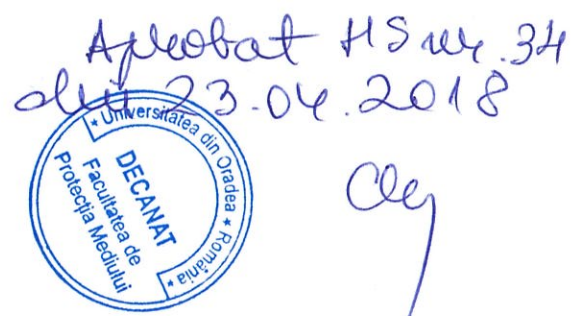 Aprobat HS nr. 34
din 23.04.2018
* Universitatea din Oradea * România *
DECANAT
Facultatea de
Protecția Mediului